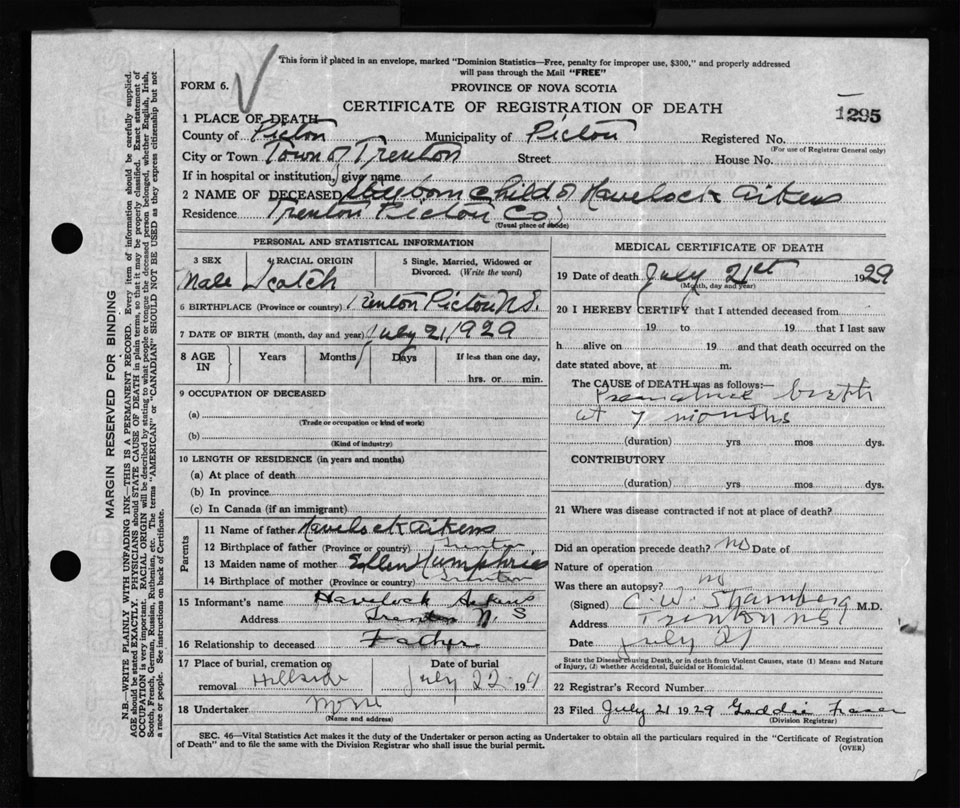 This form if placed in an envelope, marked "Dominion Statistics—Free, penalty for improper use, $300," and properly addressed
will pass through the Mail "FREE"
FORM 6.
PROVINCE OF NOVA SCOTIA
CERTIFICATE OF REGISTRATION OF DEATH
1295
1 PLACE OF DEATH
County of Pictou Municipality of Pictou Registered No.
(For use of Registrar General only)
City or Town Town of Trenton Street House No.
If in hospital or institution, give name
2 NAME OF DECEASED child of Havelock Aikens
Residence Trenton Pictou Co
(Usual place of abode)
PERSONAL AND STATISTICAL INFORMATION
3 SEX 4 RACIAL ORIGIN 5 Single, Married, Widowed or
Divorced. (Write the word)
Male Scotch
6 BIRTHPLACE (Province or country) Trenton Pictou N.S.
7 DATE OF BIRTH (month, day and year) July 21/1929
8 AGE IN Years Months Days If less than one day,
hrs. or min.
9 OCCUPATION OF DECEASED
(a)
(Trade or occupation or kind of work)
(b)
(Kind of industry)
10 LENGTH OF RESIDENCE (in years and months)
(a) At place of death
(b) In province
(c) In Canada (if an immigrant)
Parents
11 Name of father Havelock Aikens
12 Birthplace of father (Province or country) Trenton
13 Maiden name of mother Ellen Humphries
14 Birthplace of mother (Province or country) Trenton
15 Informant's name Havelock Aikens
Address Trenton N. S
16 Relationship to deceased Father
17 Place of burial, cremation or Date of burial
removal Hillside July 22 19
18 Undertaker None
(Name and address)
MEDICAL CERTIFICATE OF DEATH
19 Date of death July 21st 1929
(Month, day and year)
20 I HEREBY CERTIFY that I attended deceased from
19 to 19 that I last saw
h alive on 19 and that death occurred on the
date stated above, at m.
The CAUSE of DEATH was as follows:—
Premature birth
at 7 months
(duration) yrs mos dys.
CONTRIBUTORY
(duration) yrs mos dys.
21 Where was disease contracted if not at place of death?
Did an operation precede death? no Date of
Nature of operation
Was there an autopsy? no
(Signed) C. W. M.D.
Address Trenton NS
Date July 21
State the Disease causing Death, or in death from Violent Causes, state (1) Means and Nature
of Injury, (2) whether Accidental, Suicidal or Homicidal.
22 Registrar's Record Number
23 Filed July 21 1929 Geddie Fraser
(Division Registrar)
SEC. 46—Vital Statistics Act makes it the duty of the Undertaker or person acting as Undertaker to obtain all the particulars required in the "Certificate of Registration
of Death" and to file the same with the Division Registrar who shall issue the burial permit.
(OVER)
MARGIN RESERVED FOR BINDING
N.B.—WRITE PLAINLY WITH UNFADING INK—THIS IS A PERMANENT RECORD. Every item of information should be carefully supplied.
AGE should be stated EXACTLY. PHYSICIANS should STATE CAUSE OF DEATH in plain terms, so that it may be properly classified. Exact statement of
OCCUPATION is very important. RACIAL ORIGIN will be described by stating to what people or tongue the deceased person belonged, whether English, Irish,
Scotch, French, German, Russian, Ruthenian, etc. The terms "AMERICAN" or "CANADIAN" SHOULD NOT BE USED as they express citizenship but not
a race or people. See instructions on back of Certificate.